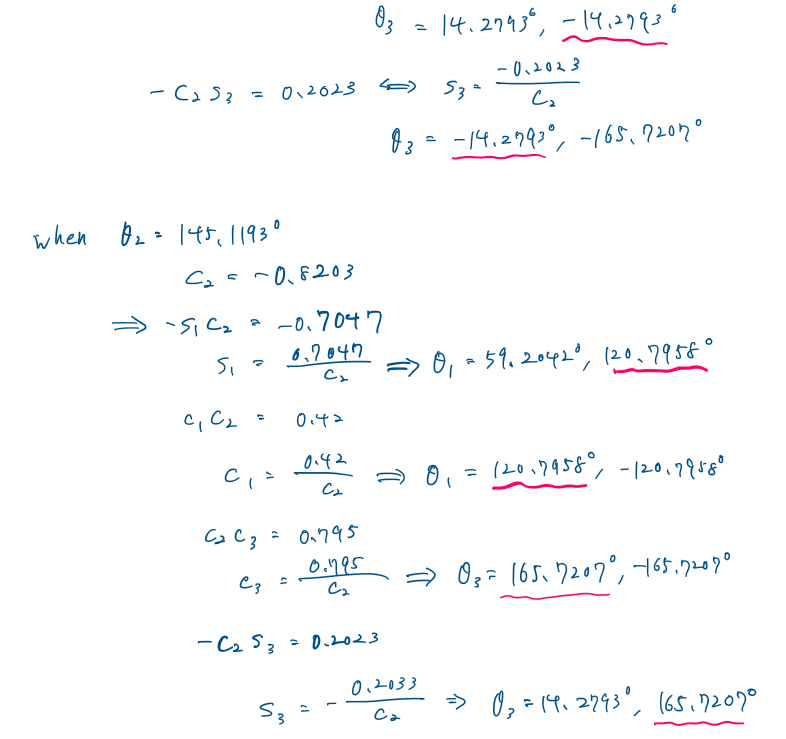 θ₃ = 14.2793°, -14.2793°
-C₂S₃ = 0.2023 ⟺ S₃ = -0.2023/C₂
θ₃ = -14.2793°, -165.7207°
when θ₂ = 145.1193°
C₂ = -0.8203
⟹ -S₁C₂ = -0.7047
S₁ = 0.7047/C₂ ⟹ θ₁ = 59.2042°, 120.7958°
C₁C₂ = 0.42
C₁ = 0.42/C₂ ⟹ θ₁ = 120.7958°, -120.7958°
C₂C₃ = 0.795
C₃ = 0.795/C₂ ⟹ θ₃ = 165.7207°, -165.7207°
-C₂S₃ = 0.2023
S₃ = -0.2033/C₂ ⟹ θ₃ = 14.2793°, 165.7207°